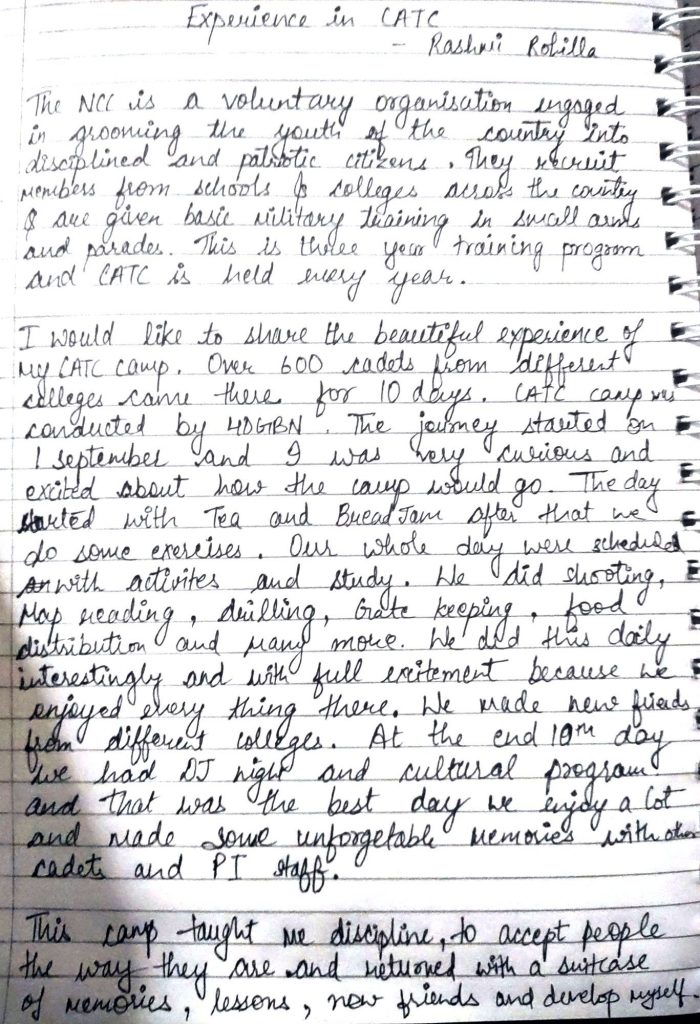 Experience in CATC
- Rashmi Rohilla
The NCC is a voluntary organisation engaged
in grooming the youth of the country into
disciplined and patriotic citizens. They recruit
members from schools & colleges across the country
& are given basic military training in small arms
and parades. This is three year training program
and CATC is held every year.
I would like to share the beautiful experience of
my CATC camp. Over 600 cadets from different
colleges came there for 10 days. CATC camp was
conducted by HDGBN. The journey started on
1 september and I was very curious and
excited about how the camp would go. The day
started with Tea and Bread Jam after that we
do some exercises. Our whole day were scheduled
with activites and study. We did shooting,
Map reading, drilling, Gate keeping, food
distribution and many more. We did this daily
interestingly and with full excitement because we
enjoyed every thing there. We made new friends
from different colleges. At the end 10th day
we had DJ night and cultural program
and that was the best day we enjoy a lot
and made some unforgetable memories with other
cadets and PI staff.
This camp taught me discipline, to accept people
the way they are and returned with a suitcase
of memories, lessons, new friends and develop myself.